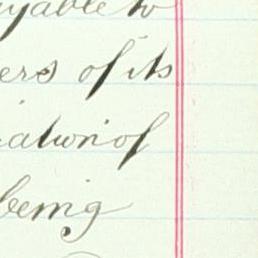 ayable to
ers of its
ation of
being